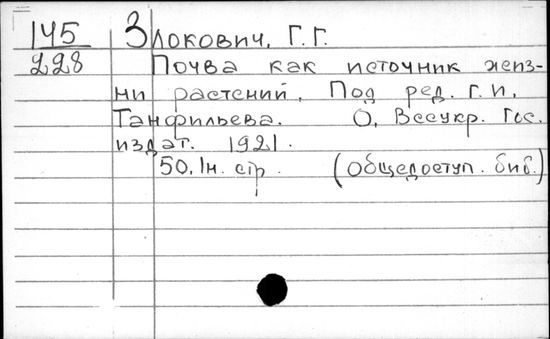 145 Злокович, Г. Г.
228 Почва как источник жиз-
ни растений. Под ред. Г. И.
Танфильева. О. Всеукр. Гос.
издат. 1921.
50, 1н. стр. (Общедоступ. биб.)